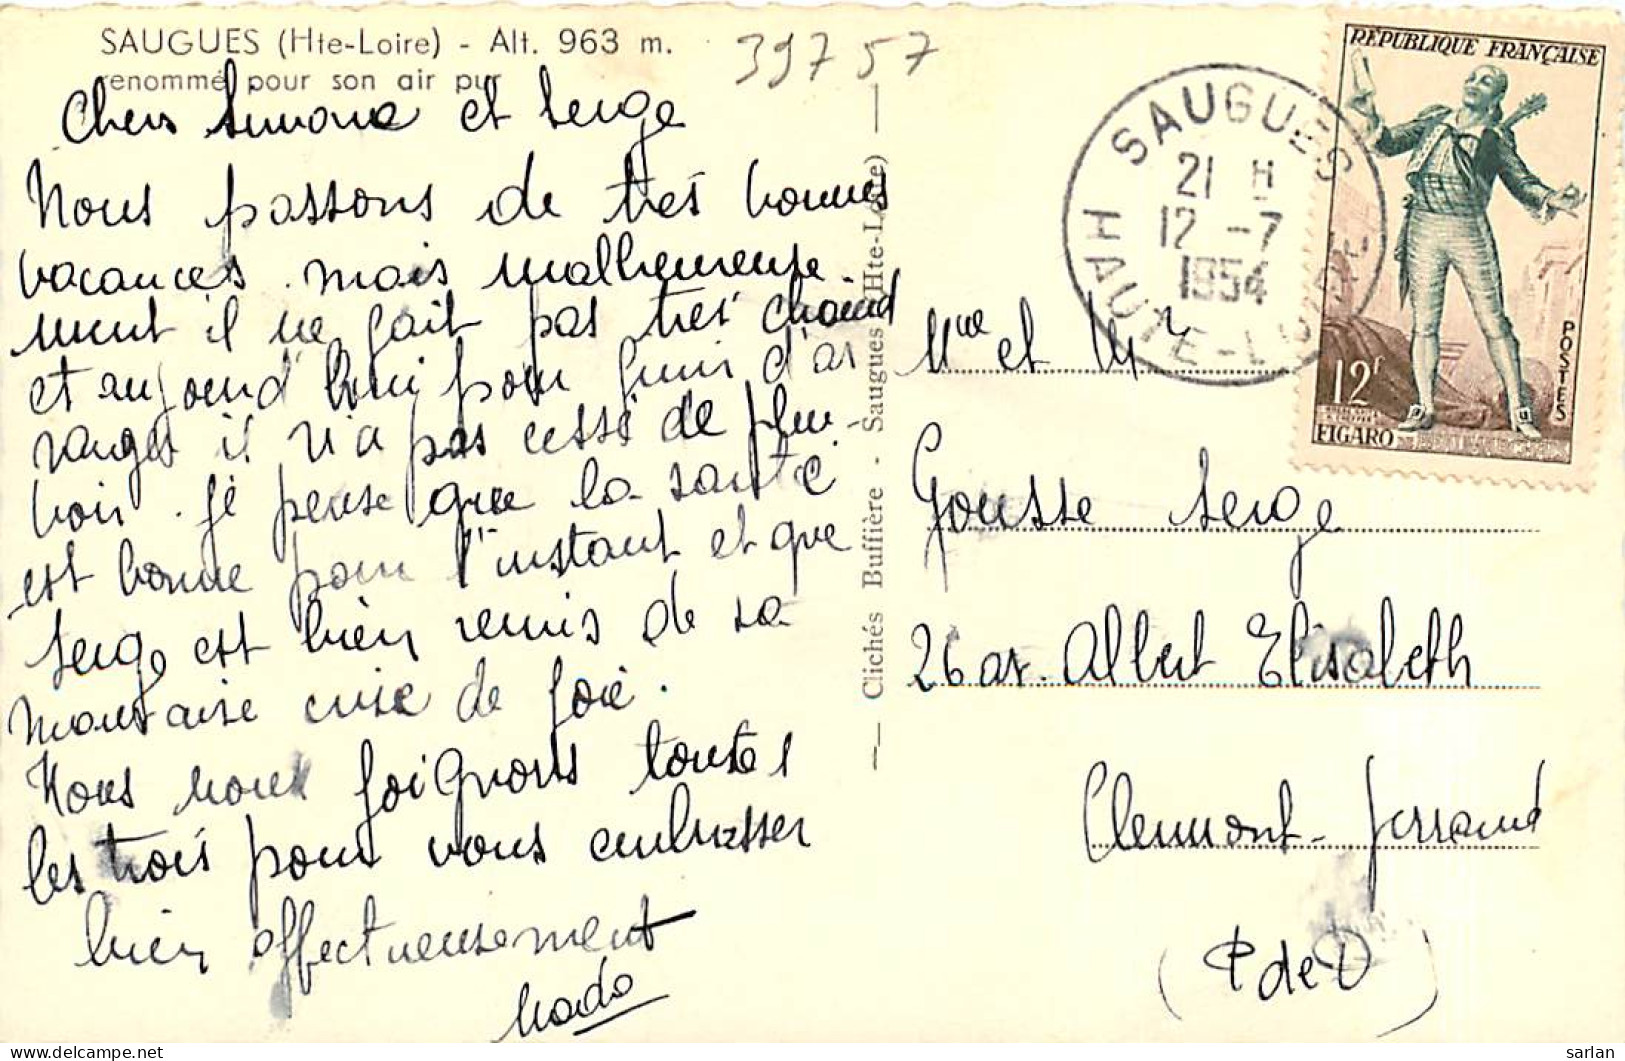 SAUGUES (Hte-Loire) - Alt. 963 m.
renommé pour son air pur
39757
Chers Simone et Serge
Nous passons de très bonnes
vacances. mais malheureuse-
ment il ne fait pas très chaud
et aujourd'hui pour finir d'ar
ranger il n'a pas cessé de pleu-
voir. Je pense que la santé
est bonne pour l'instant et que
Serge est bien remis de sa
mauvaise crise de foie.
Nous nous joignons toutes
les trois pour vous embrasser
bien affectueusement
Nado
— Clichés Buffière - Saugues (Hte-Loire) —
SAUGUES
21 H
12 -7
1954
HAUTE-LOIRE
RÉPUBLIQUE FRANÇAISE
POSTES
12f
FIGARO
Mme et Mr
Gousse Serge
26 av. Albert Elisabeth
Clermont-Ferrand
(P de D)
sarlan